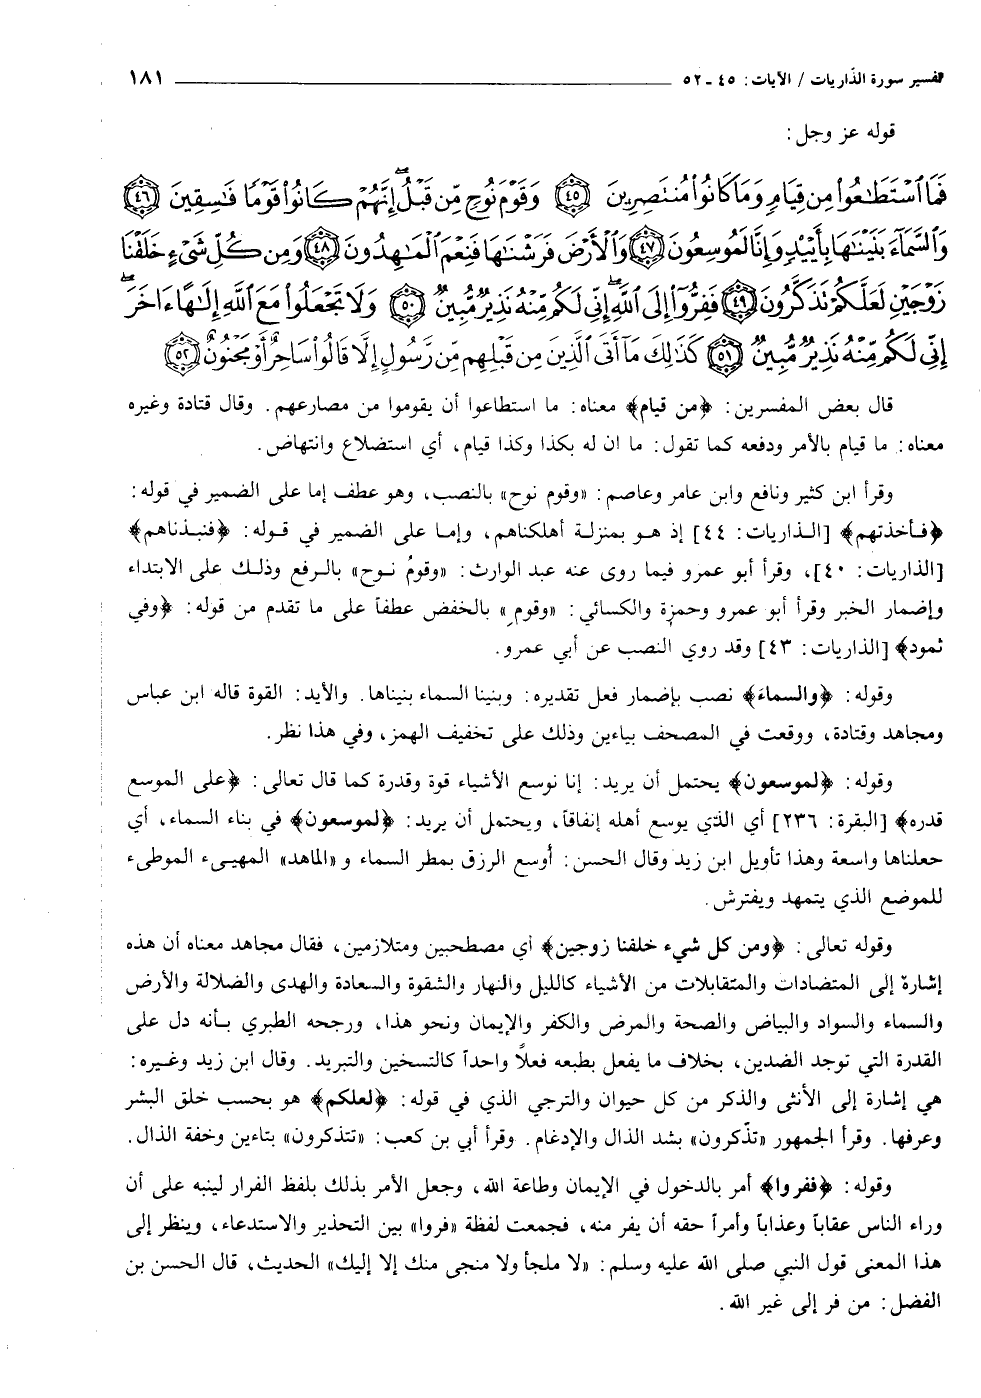 تفسير سورة الذاريات / الآيات: ٤٥ - ٥٢ ١٨١
قوله عز وجل:
فَمَا ٱسْتَطَٰعُوا۟ مِن قِيَامٍ وَمَا كَانُوا۟ مُنتَصِرِينَ ﴿٤٥﴾ وَقَوْمَ نُوحٍ مِّن قَبْلُ ۖ إِنَّهُمْ كَانُوا۟ قَوْمًا فَٰسِقِينَ ﴿٤٦﴾
وَٱلسَّمَآءَ بَنَيْنَٰهَا بِأَيْي۟دٍ وَإِنَّا لَمُوسِعُونَ ﴿٤٧﴾ وَٱلْأَرْضَ فَرَشْنَٰهَا فَنِعْمَ ٱلْمَٰهِدُونَ ﴿٤٨﴾ وَمِن كُلِّ شَىْءٍ خَلَقْنَا
زَوْجَيْنِ لَعَلَّكُمْ تَذَكَّرُونَ ﴿٤٩﴾ فَفِرُّوٓا۟ إِلَى ٱللَّهِ ۖ إِنِّى لَكُم مِّنْهُ نَذِيرٌ مُّبِينٌ ﴿٥٠﴾ وَلَا تَجْعَلُوا۟ مَعَ ٱللَّهِ إِلَٰهًا ءَاخَرَ ۖ
إِنِّى لَكُم مِّنْهُ نَذِيرٌ مُّبِينٌ ﴿٥١﴾ كَذَٰلِكَ مَآ أَتَى ٱلَّذِينَ مِن قَبْلِهِم مِّن رَّسُولٍ إِلَّا قَالُوا۟ سَاحِرٌ أَوْ مَجْنُونٌ ﴿٥٢﴾
قال بعض المفسرين: ﴿من قيام﴾ معناه: ما استطاعوا أن يقوموا من مصارعهم. وقال قتادة وغيره
معناه: ما قيام بالأمر ودفعه كما تقول: ما ان له بكذا وكذا قيام، أي استضلاع وانتهاض.
وقرأ ابن كثير ونافع وابن عامر وعاصم: «وقوم نوح» بالنصب، وهو عطف إما على الضمير في قوله:
﴿فأخذتهم﴾ [الذاريات: ٤٤] إذ هو بمنزلة أهلكناهم، وإما على الضمير في قوله: ﴿فنبذناهم﴾
[الذاريات: ٤٠]، وقرأ أبو عمرو فيما روى عنه عبد الوارث: «وقومُ نوح» بالرفع وذلك على الابتداء
وإضمار الخبر وقرأ أبو عمرو وحمزة والكسائي: «وقومِ» بالخفض عطفاً على ما تقدم من قوله: ﴿وفي
ثمود﴾ [الذاريات: ٤٣] وقد روي النصب عن أبي عمرو.
وقوله: ﴿والسماءَ﴾ نصب بإضمار فعل تقديره: وبنينا السماء بنيناها. والأيد: القوة قاله ابن عباس
ومجاهد وقتادة، ووقعت في المصحف بياءين وذلك على تخفيف الهمز، وفي هذا نظر.
وقوله: ﴿لموسعون﴾ يحتمل أن يريد: إنا نوسع الأشياء قوة وقدرة كما قال تعالى: ﴿على الموسع
قدره﴾ [البقرة: ٢٣٦] أي الذي يوسع أهله إنفاقاً، ويحتمل أن يريد: ﴿لموسعون﴾ في بناء السماء، أي
جعلناها واسعة وهذا تأويل ابن زيد وقال الحسن: أوسع الرزق بمطر السماء و «الماهد» المهيىء الموطىء
للموضع الذي يتمهد ويفترش.
وقوله تعالى: ﴿ومن كل شيء خلقنا زوجين﴾ أي مصطحبين ومتلازمين، فقال مجاهد معناه أن هذه
إشارة إلى المتضادات والمتقابلات من الأشياء كالليل والنهار والشقوة والسعادة والهدى والضلالة والأرض
والسماء والسواد والبياض والصحة والمرض والكفر والإيمان ونحو هذا، ورجحه الطبري بأنه دل على
القدرة التي توجد الضدين، بخلاف ما يفعل بطبعه فعلاً واحداً كالتسخين والتبريد. وقال ابن زيد وغيره:
هي إشارة إلى الأنثى والذكر من كل حيوان والترجي الذي في قوله: ﴿لعلكم﴾ هو بحسب خلق البشر
وعرفها. وقرأ الجمهور «تذّكرون» بشد الذال والإدغام. وقرأ أبي بن كعب: «تتذكرون» بتاءين وخفة الذال.
وقوله: ﴿ففروا﴾ أمر بالدخول في الإيمان وطاعة الله، وجعل الأمر بذلك بلفظ الفرار لينبه على أن
وراء الناس عقاباً وعذاباً وأمراً حقه أن يفر منه، فجمعت لفظة «فروا» بين التحذير والاستدعاء، وينظر إلى
هذا المعنى قول النبي صلى الله عليه وسلم: «لا ملجأ ولا منجى منك إلا إليك» الحديث، قال الحسن بن
الفضل: من فر إلى غير الله.